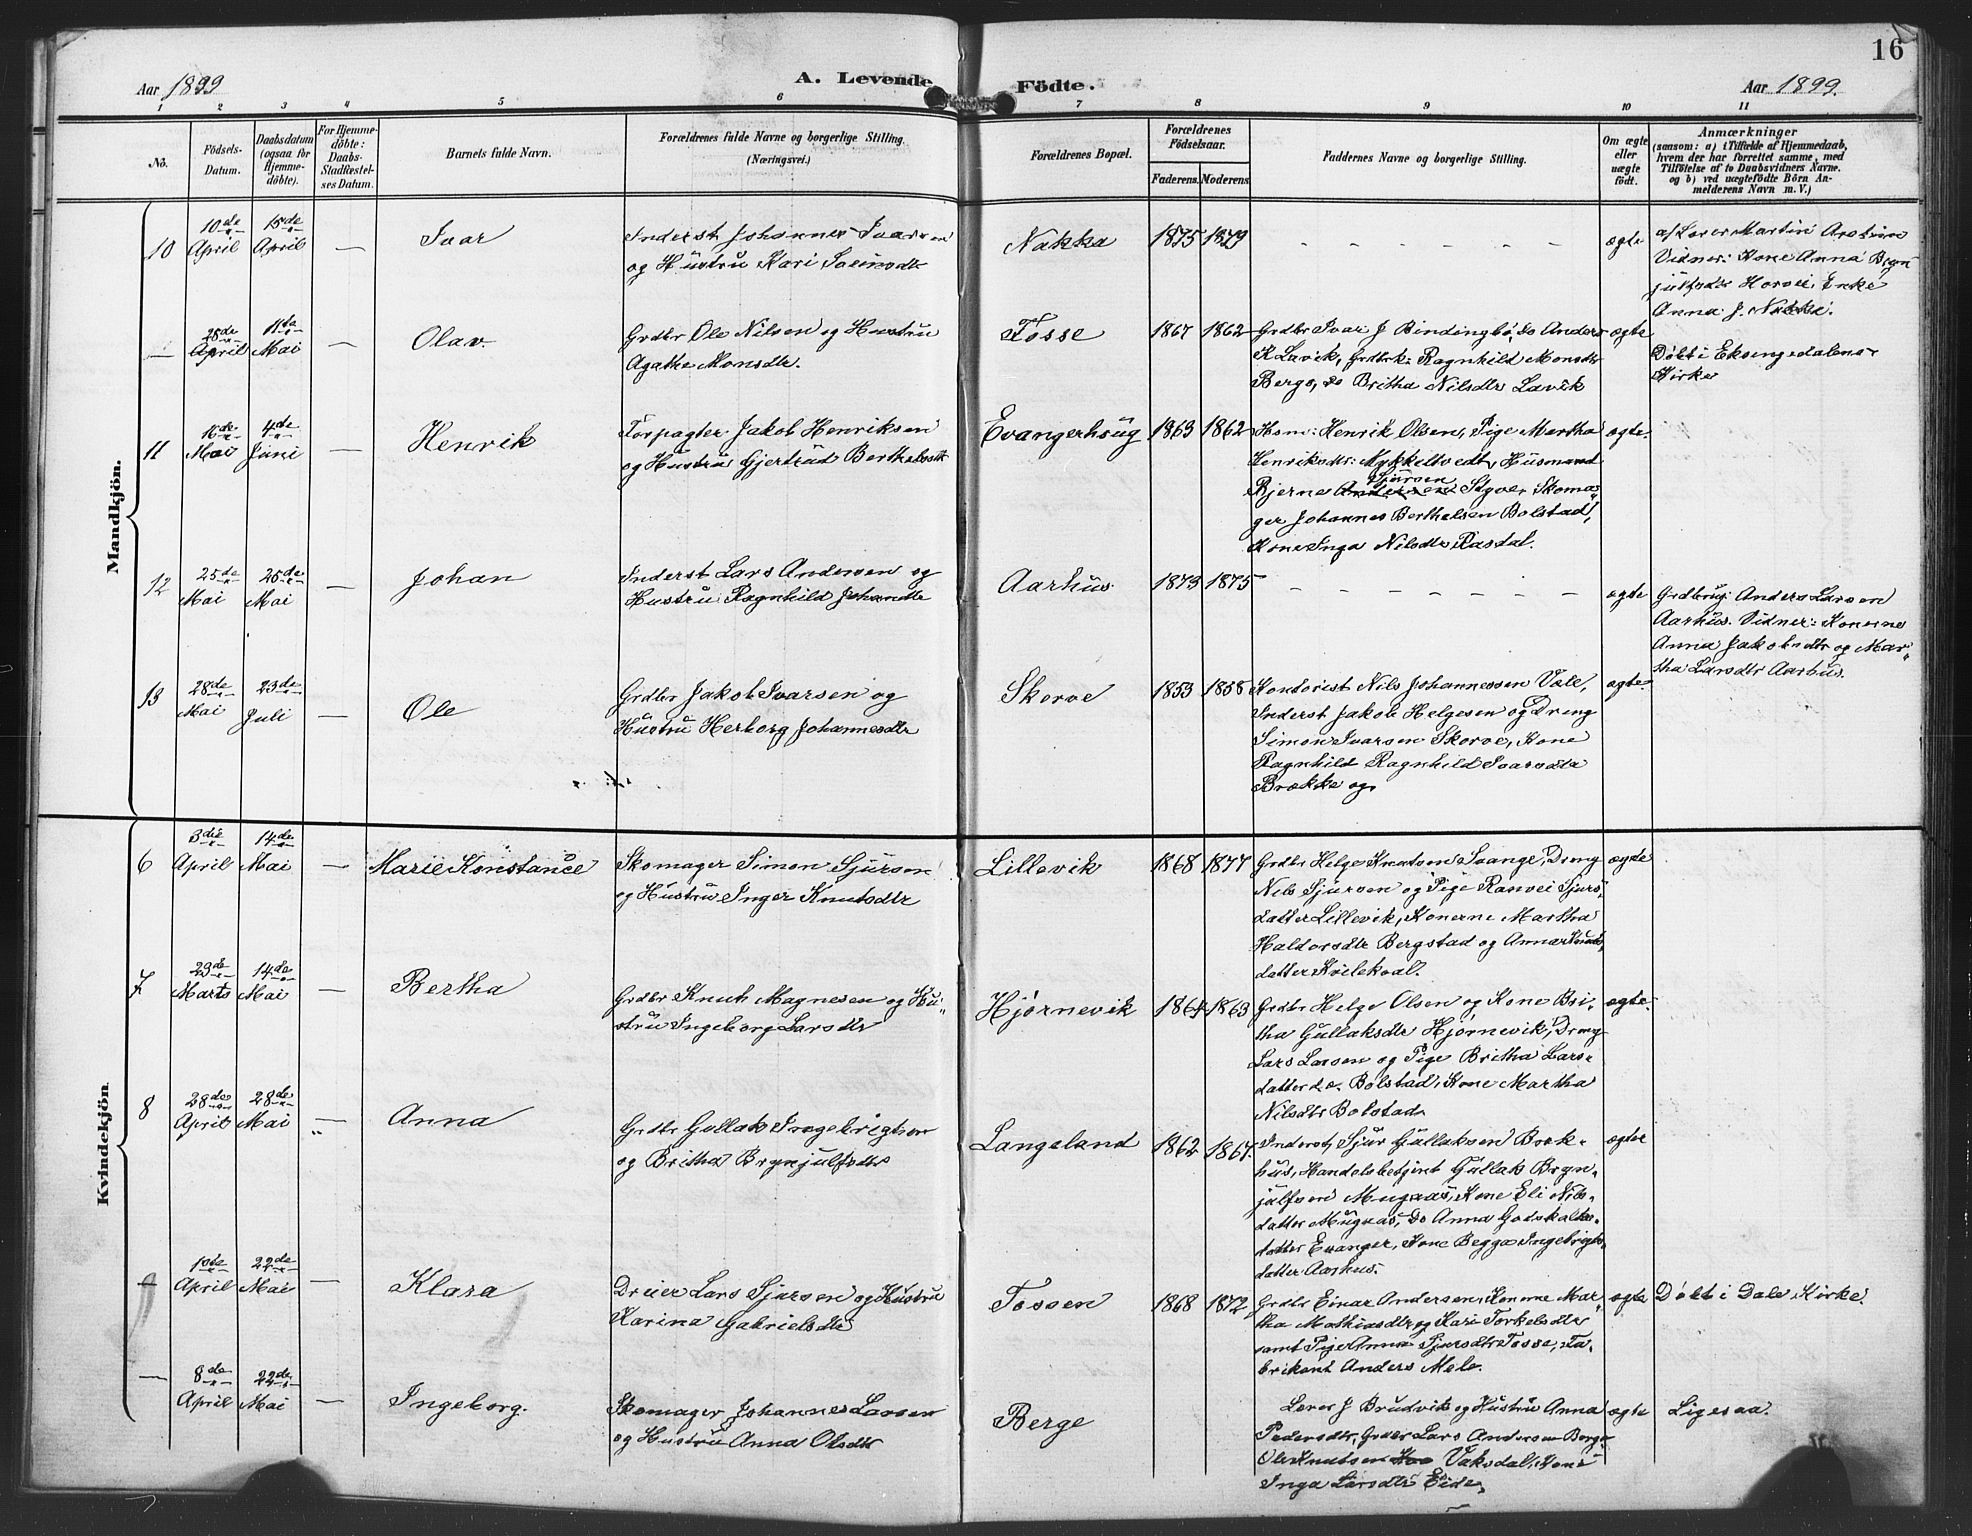 16
Aar 1899
A. Levende Födte.
Aar 1899.
1 2 3 4 5 6 7 8 9 10 11
No.
Födsels-
Datum.
Daabsdatum
(ogsaa for
Hjemme-
döbte).
For Hjemme-
döbte:
Daabs-
Stadfæstel-
ses Datum.
Barnets fulde Navn.
Forældrenes fulde Navne og borgerlige Stilling.
(Næringsvei.)
Forældrenes Bopæl.
Forældrenes
Födselsaar.
Faderens. Moderens.
Faddernes Navne og borgerlige Stilling.
Om ægte
eller
uægte
födt.
Anmærkninger
(saasom: a) i Tilfælde af Hjemmedaab,
hvem der har forrettet samme, med
Tilföielse af to Daabsvidners Navne.
og b) ved uægtefödte Börn An-
melderens Navn m. V.)
Mandkjön.
10
10de April
15de April
—
Ivar
Inderst Johannes Ivarsen
og Hustru Kari
Nakka
1875 1879
– – – – – –
ægte
af Lærer Martin
Vidner: Kone Anna Bryn
julfsdtr Horvei, Enke
Anna J. Nakke.
—
28de April
11te Mai
—
Olav.
Grdbr Ole Nilsen og Hustru
Agathe Monsdtr.
Fosse
1867 1862
Grdbr Ivar J Bindingbø, Do Anders
K Lavik, Grdbrk: Ragnhild Monsdtr
Berge, Do Britha Nilsdtr Lavik
ægte
Døbt i Eksingedalens
Kirke
11
16de Mai
4de Juni
—
Henrik
Forpagter Jakob Henriksen
og Hustru Gjertrud Berthelsdtr
Evangerhsug
1863 1862
Hsm: Henrik Olsen, Pige Martha
Henriksdtr: Mykkeltvedt, Husmand
Sjursen
Bjerne Andersen Styve, Skoma-
ger Johannes Berthelsen Bolstad,
Kone Inga Nilsdtr Rasdal.
ægte.
12
25de Mai
26de Mai
—
Johan
Inderst Lars Andersen og
Hustru Ragnhild Johansdtr
Aarhus
1873 1875
– – – – – – –
ægte
Grdbrug: Anders Larsen
Aarhus. Vidner: Konerne
Anna Jakobsdtr og Mar-
tha Larsdtr Aarhus.
13
28de Mai
23de Juli
—
Ole
Grdbr Jakob Ivarsen og
Hustru Herborg Johannesdtr
Skorve
1853 1858
Kontorist Nils Johannessen Vale,
Inderst Jakob Helgesen og Dreng
Simon Ivarsen Skorve, Kone
Ragnhild Ragnhild Ivarsdtr
Brække og
ægte.
Kvindekjön.
6
3die April
14de Mai
—
Marie Konstance
Skomager Simon Sjursen
og Hustru Inger Knutsdtr
Lillevik
1868 1877
Grdbr Helge Knutsen Saange, Dreng
Nils Sjursen og Pige Ranvei Sjurs-
datter Lillevik, Konerne Martha
Haldorsdtr Bergstad og Anna Knuts-
datter
ægte
7
29de Marts
14de Mai
—
Bertha
Grdbr Knut Magnesen og Hu-
stru Ingeborg Larsdtr
Hjørnevik
1864 1863
Grdbr Helge Olsen og Kone Bri-
tha Gullaksdtr Hjørnevik, Dreng
Lars Larsen og Pige Britha Lars-
datter do. Bolstad, Kone Martha
Nilsdtr Bolstad
ægte.
8
28de April
28de Mai
—
Anna
Grdbr Gullak Ingebrigtsen
og Britha Brynjulfsdtr
Langeland
1862 1867.
Inderst Sjur Gullaksen Bræk-
hus, Handelsbetjent Gullak Bryn-
julfsen Mugaas, Kone Eli Nils-
datter Mugaas, Do Anna Godskalks-
datter Evanger, Kone Begga Ingebrigts-
datter Aarhus.
ægte
—
1ste April
22de Mai
—
Klara
Dreier Lars Sjursen og Hustru
Karina Gabrielsdtr
Fossen
1868 1872
Grdbr Einar Andersen, Konerne Mar-
tha Mathiasdtr og Kari Torkelsdtr
samt Pige Anna Sjursdtr Fosse, Fa-
brikent Anders Mele.
ægte
Døbt i Dale Kirke.
—
8de April
22de Mai
—
Ingeborg.
Skomager Johannes Larsen
og Hustru Anna Olsdtr
Berge
Lærer J Brudvik og Hustru Anna
Pedersdtr, Grdbr Lars Andersen Berge
Ole Knutsen Vaksdal, Kone
Inga Larsdtr Eide,
ægte
Ligesaa.